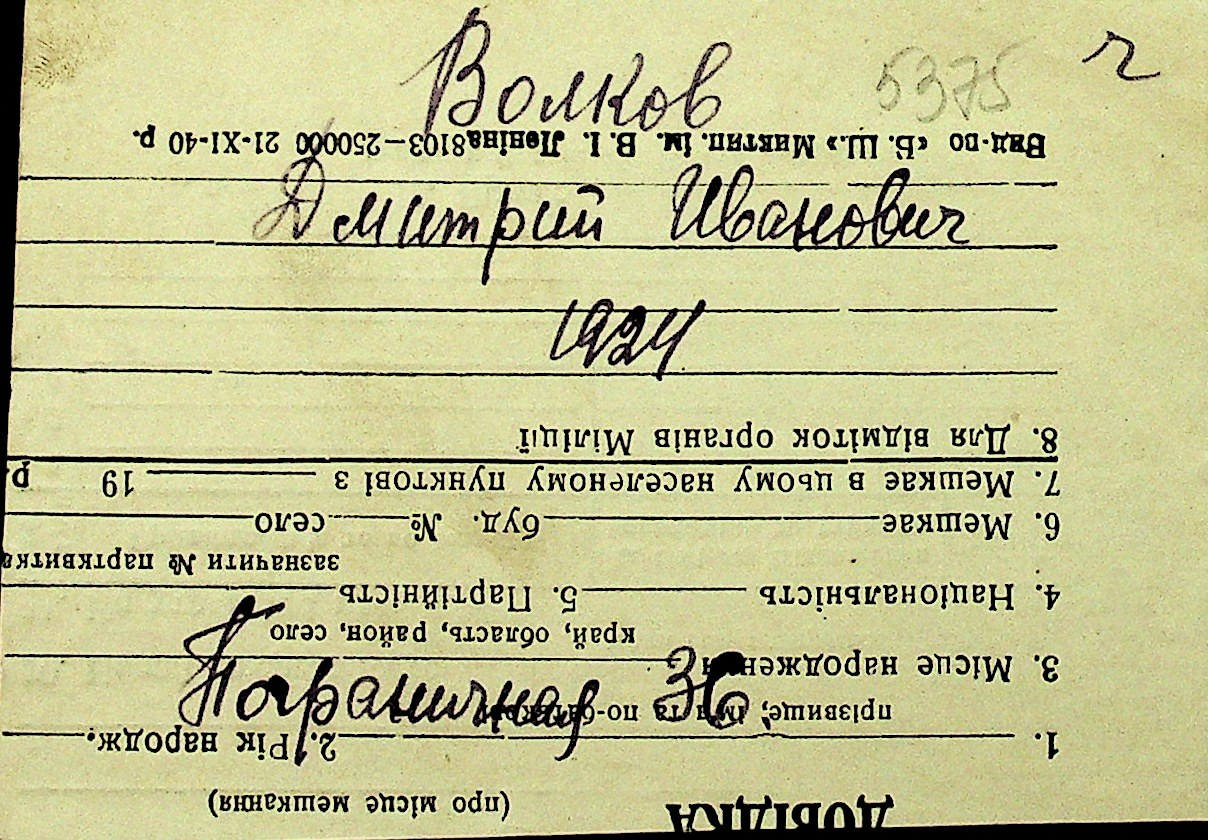 Волков 5375 ч
Дмитрий Иванович
1924
Пограничная
ДОВІДКА
(про місце мешкання)
1. 2. Рік народж.
прізвище, ім'я та по-батькові
3. Місце народження
край, область, район, село
4. Національність 5. Партійність
зазначити № партквитка
6. Мешкає буд. № село
7. Мешкає в цьому населеному пунктові з 19 р.
8. Для відміток органів Міліції
Вид-во «Б. Ш.» Миктип. ім. В. І. Леніна 8103—250000 21-XI-40 р.